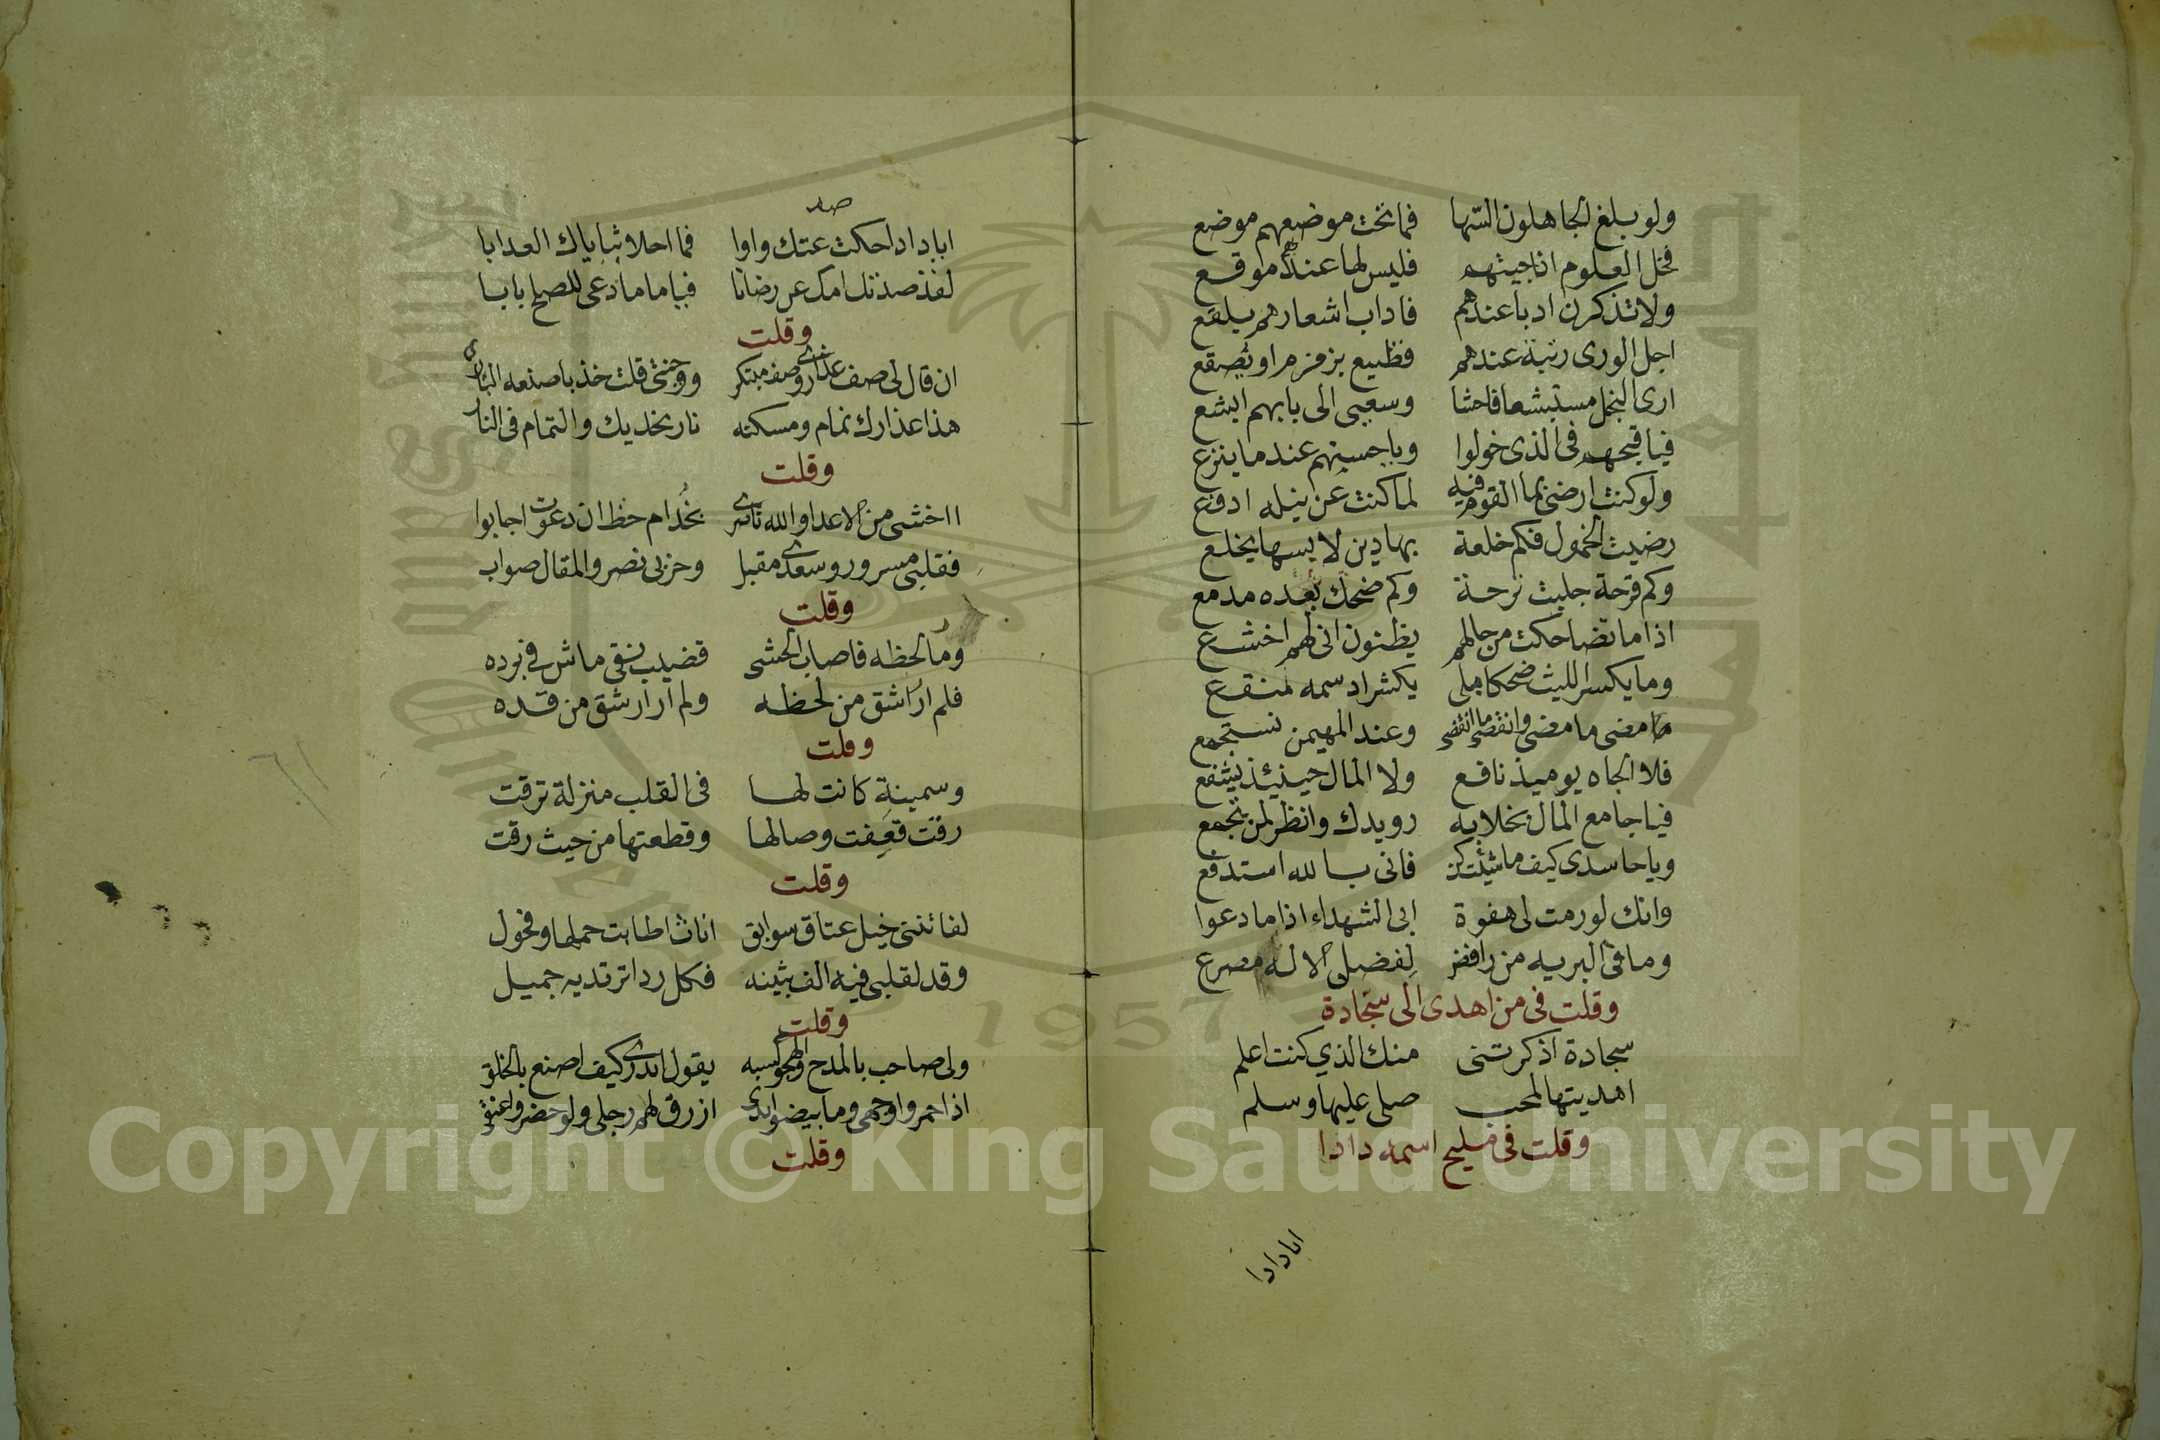 ولو بلغ الجاهلون السها فما تحت موضعهم موضع
فخل العلوم اذا جيتهم فليس لها عندهم موقع
ولا تذكرن ادبا عندهم فاداب اشعارهم بلقع
اجل الورى رتبة عندهم
ارى البخل مستبشعا فاحشا وسعيى الى بابهم ابشع
فيا قبحهم فى الذى خولوا ويا حسنهم عند ما ينزع
ولو كنت ارضى بما القوم فيه لما كنت عن نيله ادفع
رضيت الخمول فكم خلعة بها دين لابسها يخلع
وكم فرحة جلبت ترحة وكم ضحك بعده مدمع
اذا ما تضاحكت من جهالهم يظنون انى لهم اخشع
وما يكسر الليث ضحكا
ما مضى ما مضى وانقضى ما انقضى وعند المهيمن نستجمع
فلا الجاه يوميذ نافع ولا المال حينئذ يشفع
فيا جامع المال بخلا به رويدك وانظر لمن تجمع
ويا حاسدى كيف ما شئت كن فانى بالله استدفع
وانك لو رمت لى هفوة ابى الشهداء اذا ما دعوا
وما فى البريه من رافض لفضل الاله
وقلت فى من اهدى الى سجادة
سجادة اذكرتنى منك الذي كنت اعلم
اهديتها لمحب صلى عليها وسلم
وقلت فى مليح اسمه دادا
ابادادا
ابادادا حكت عتك واوا فما احلا ثناياك العذابا
رضانا فيا ماما دعى للصلح بابا
وقلت
ان قال لى صف عذارى وصف مبتكر ووجنتى قلت خذ يا صنعه البارى
هذا عذارك نمام ومسكنه نار بخديك والنمام فى النار
وقلت
ااخشى من الاعدا والله ناصرى بخدام حظ ان دعوت اجابوا
فقلبى مسرور وسعدى مقبل وحزبى نصر والمقال صواب
وقلت
لحظه فاصاب الحشى قضيب نقى ماش فى برده
فلم ار اشق من لحظه ولم ار ارشق من قده
وقلت
وسمينة كانت لها فى القلب منزلة ترقت
رقت فعفت وصالها وقطعتها من حيث رقت
وقلت
لفاتنتى خيل عتاق سوابق اناث اطابت حملها وفحول
وقد لقلبى فيه الف بثينه فكل ردا ترتديه جميل
وقلت
ولى صاحب بالمدح والهجو اسبه يقول اتدرى كيف اصنع بالخلق
اذا حمروا وجهى وما بيضوا يدى ازرق لهم رجلى ولو خضروا عنقى
وقلت
Copyright © King Saud University
1957